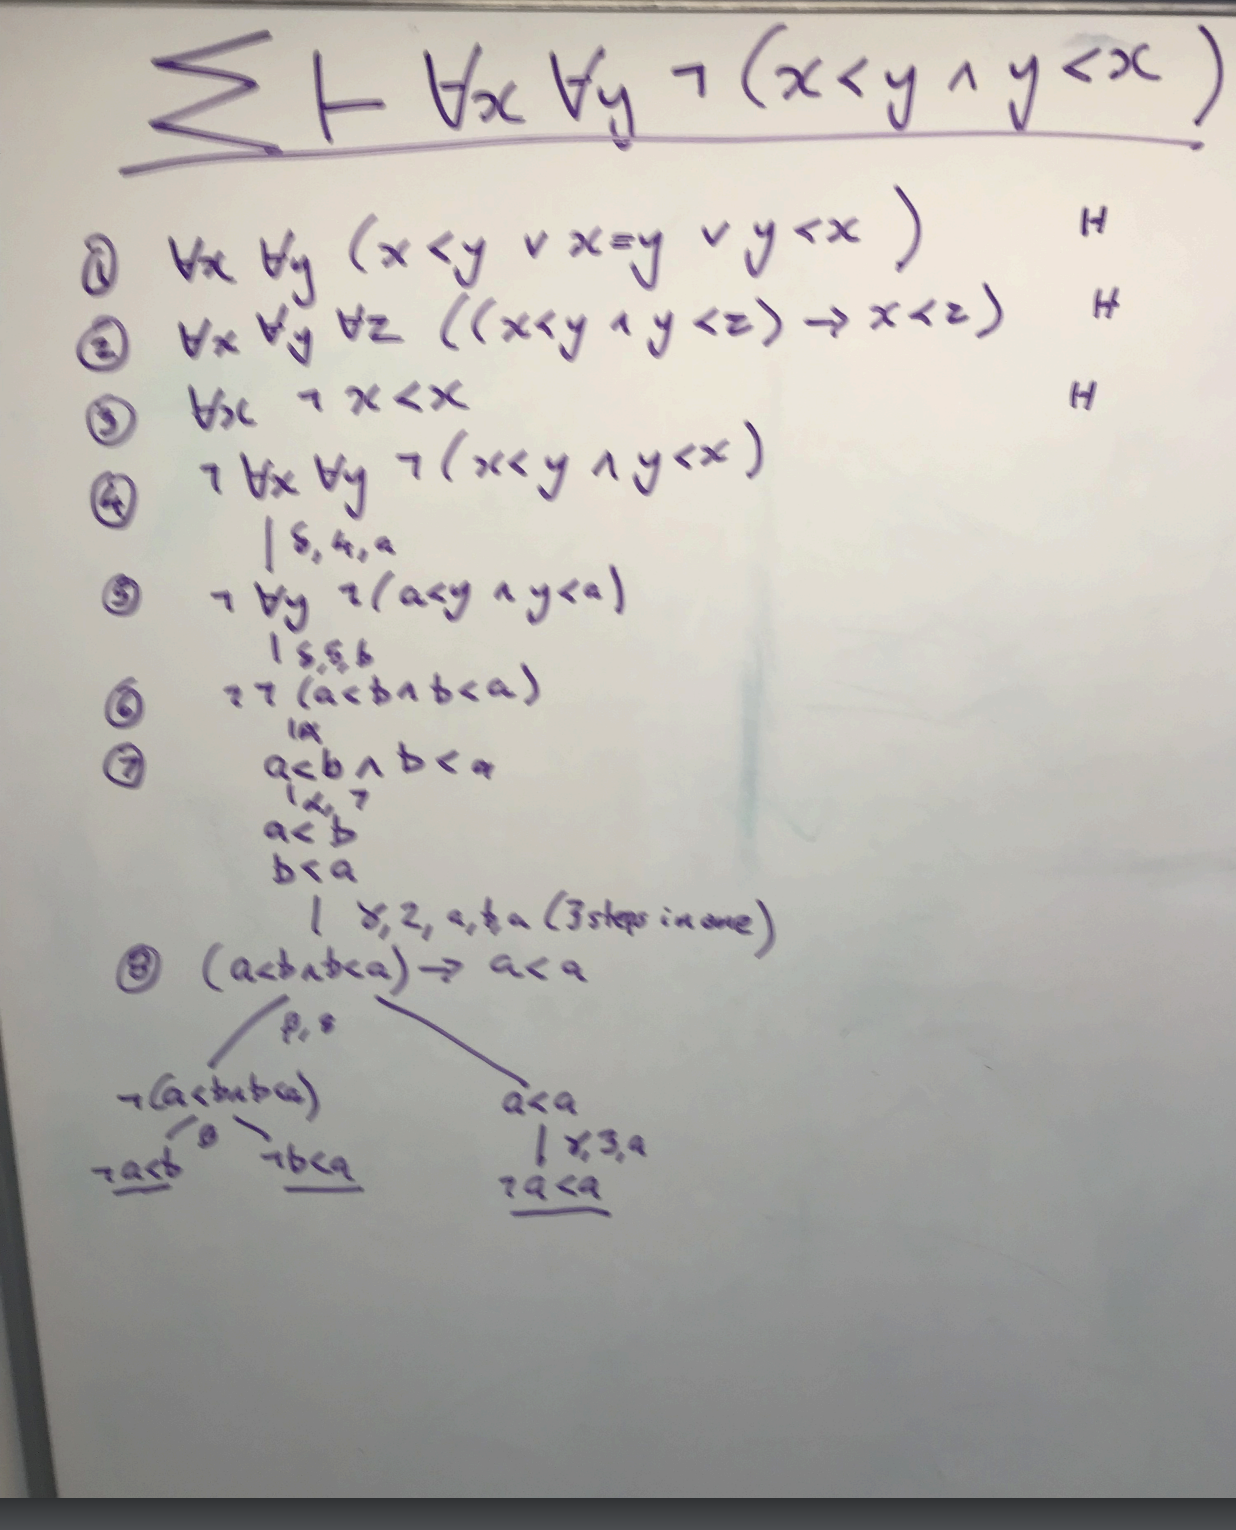 Σ ⊢ ∀x ∀y ¬ (x < y ∧ y < x)
① ∀x ∀y (x < y ∨ x = y ∨ y < x) H
② ∀x ∀y ∀z ((x < y ∧ y < z) → x < z) H
③ ∀x ¬ x < x H
④ ¬ ∀x ∀y ¬ (x < y ∧ y < x)
| δ, 4, a
⑤ ¬ ∀y ¬ (a < y ∧ y < a)
| δ, 5, b
⑥ ¬ ¬ (a < b ∧ b < a)
| α
⑦ a < b ∧ b < a
| α, 7
a < b
b < a
| γ, 2, a, b, a (3 steps in one)
⑧ (a < b ∧ b < a) → a < a
β, 8
¬ (a < b ∧ b < a) a < a
β | γ, 3, a
¬ a < b ¬ b < a ¬ a < a